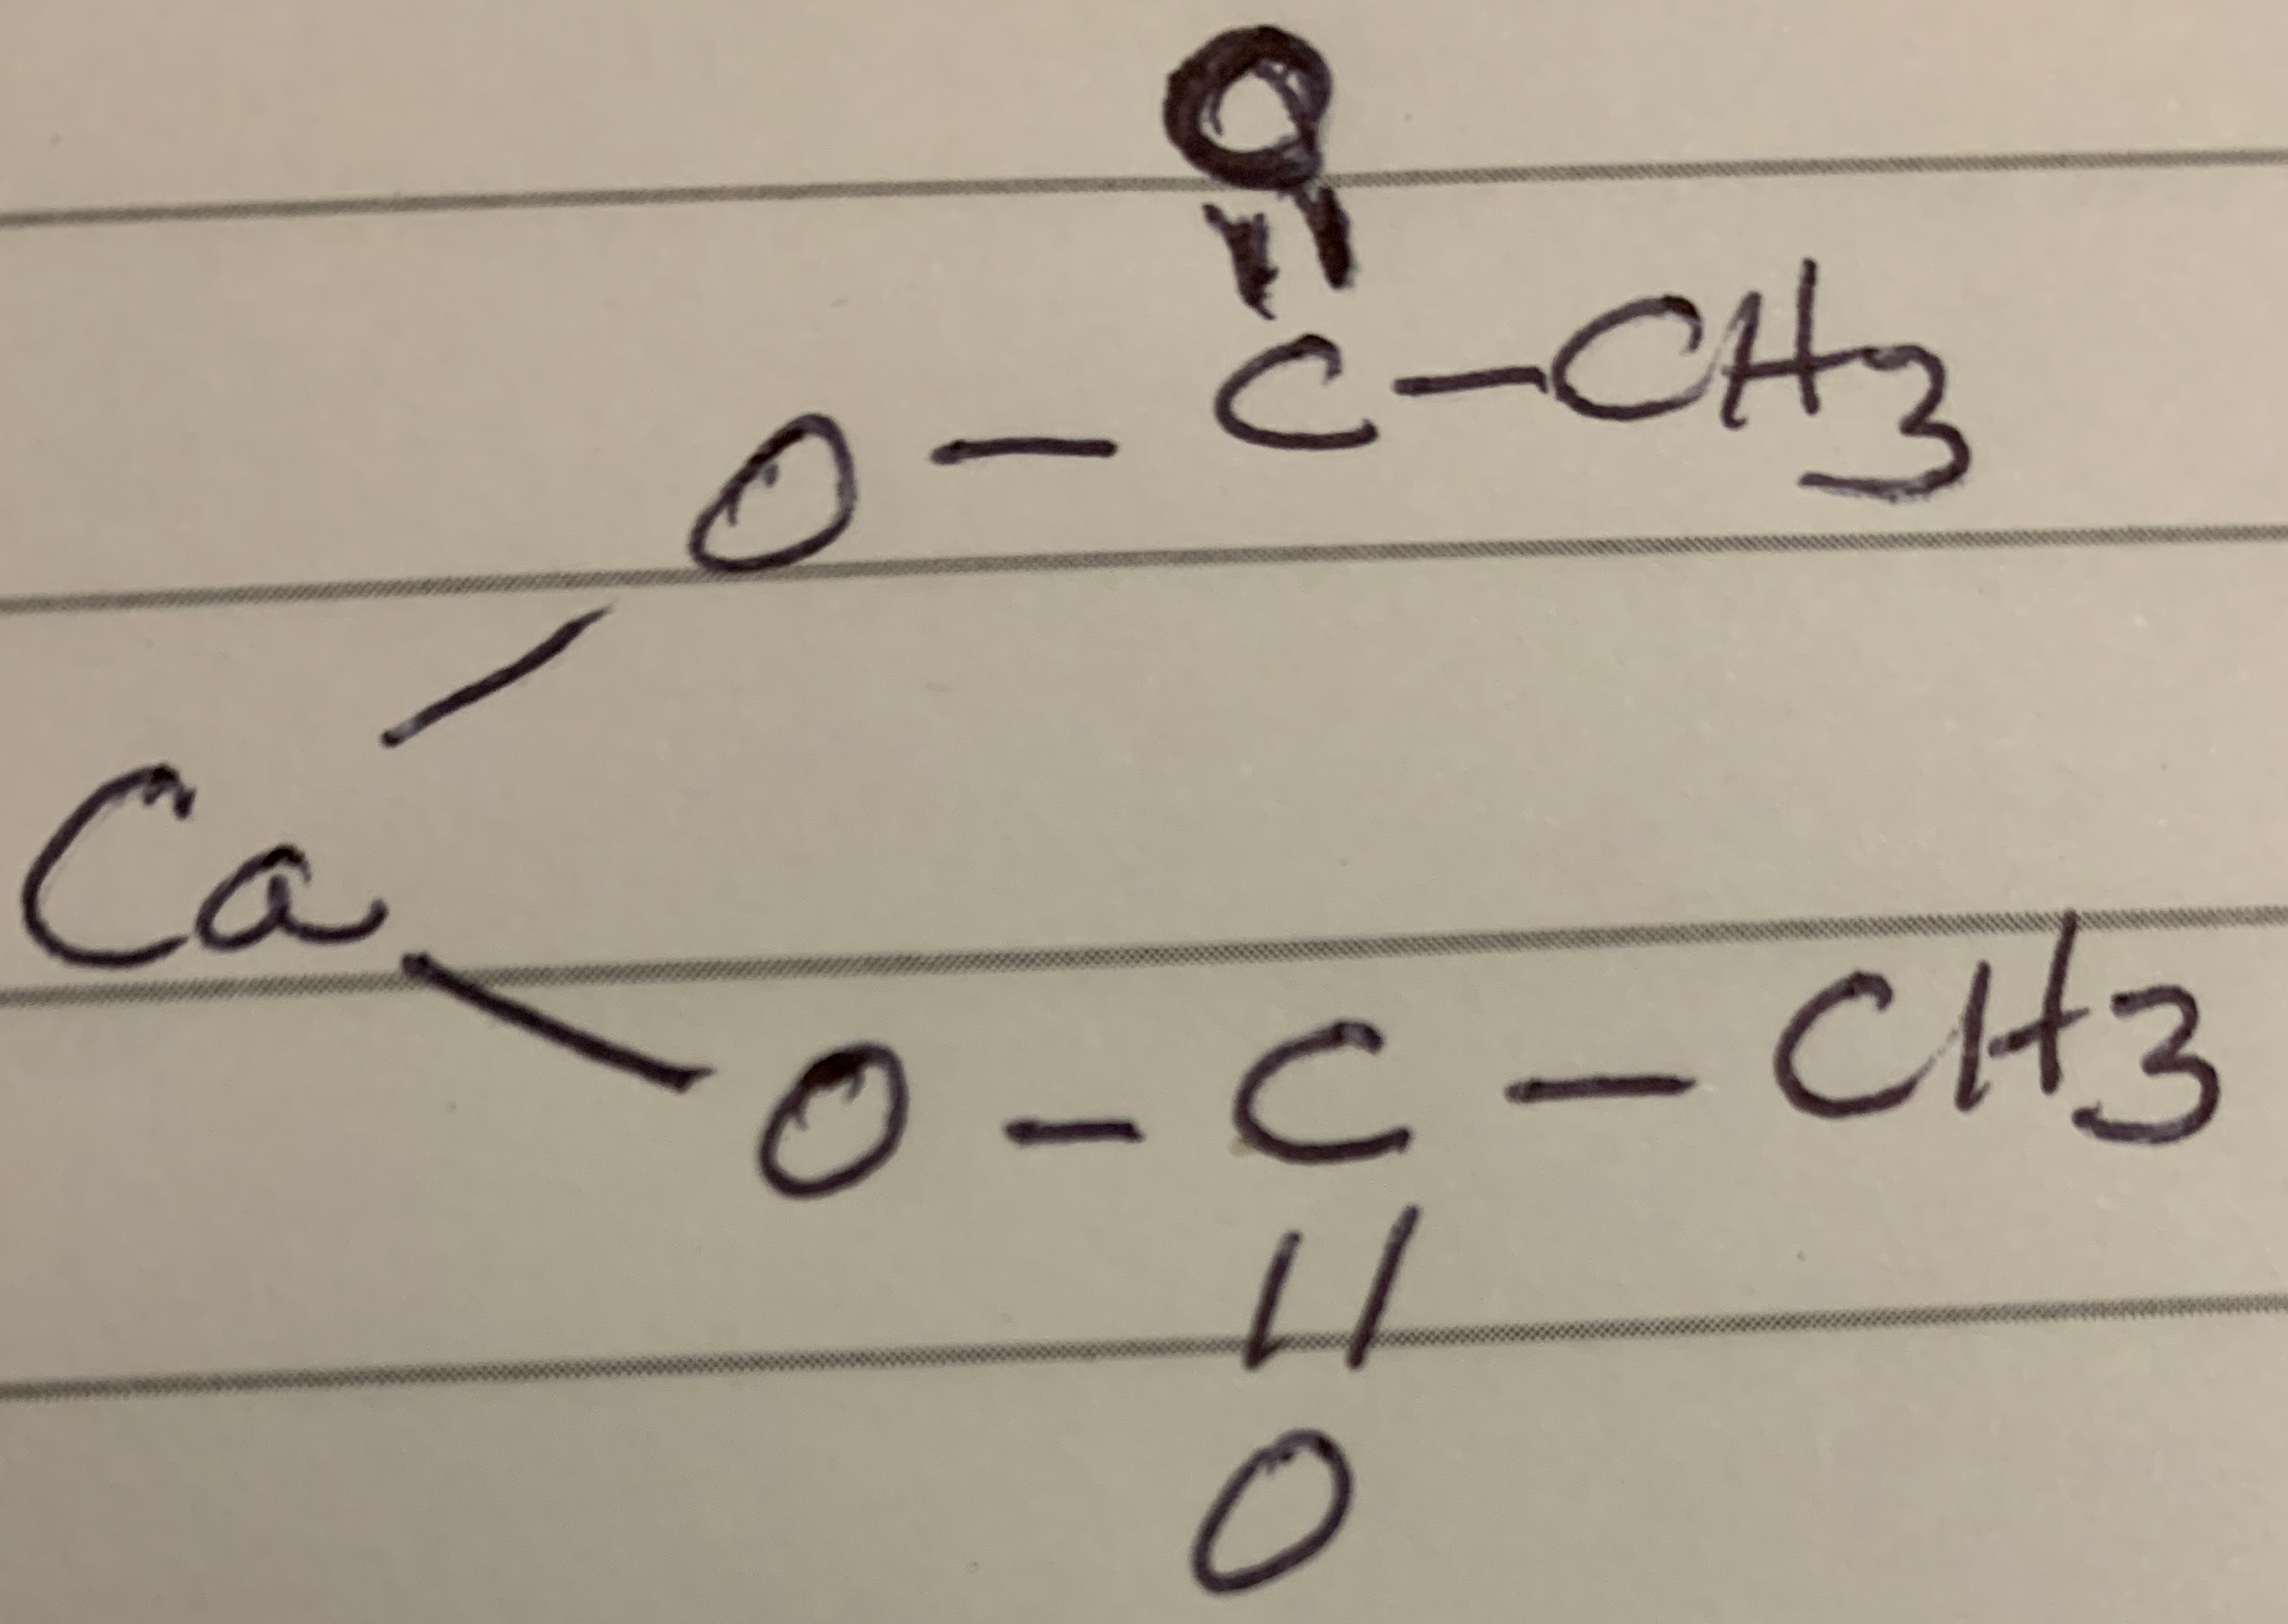 O
||
O - C - CH3
Ca
O - C - CH3
||
O